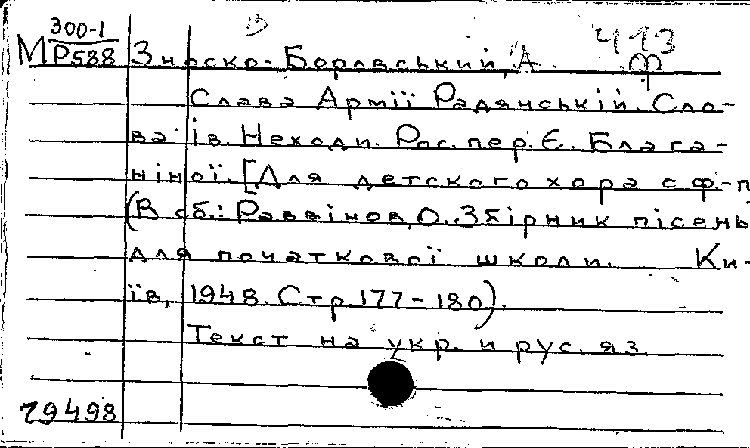 300-1
М Р588
413
Зноско-Боровський, А. Ф
Слава Армії Радянській. Сло-
ва Ів. Неходи. Рос. пер. Є. Благи-
ніної. [Для детского хора с ф-п
(В сб.: Раввінов, О. Збірник пісень
для початкової школи. Ки-
їв, 1948. Стр. 177-180).
Текст на укр. и рус. яз.
79498